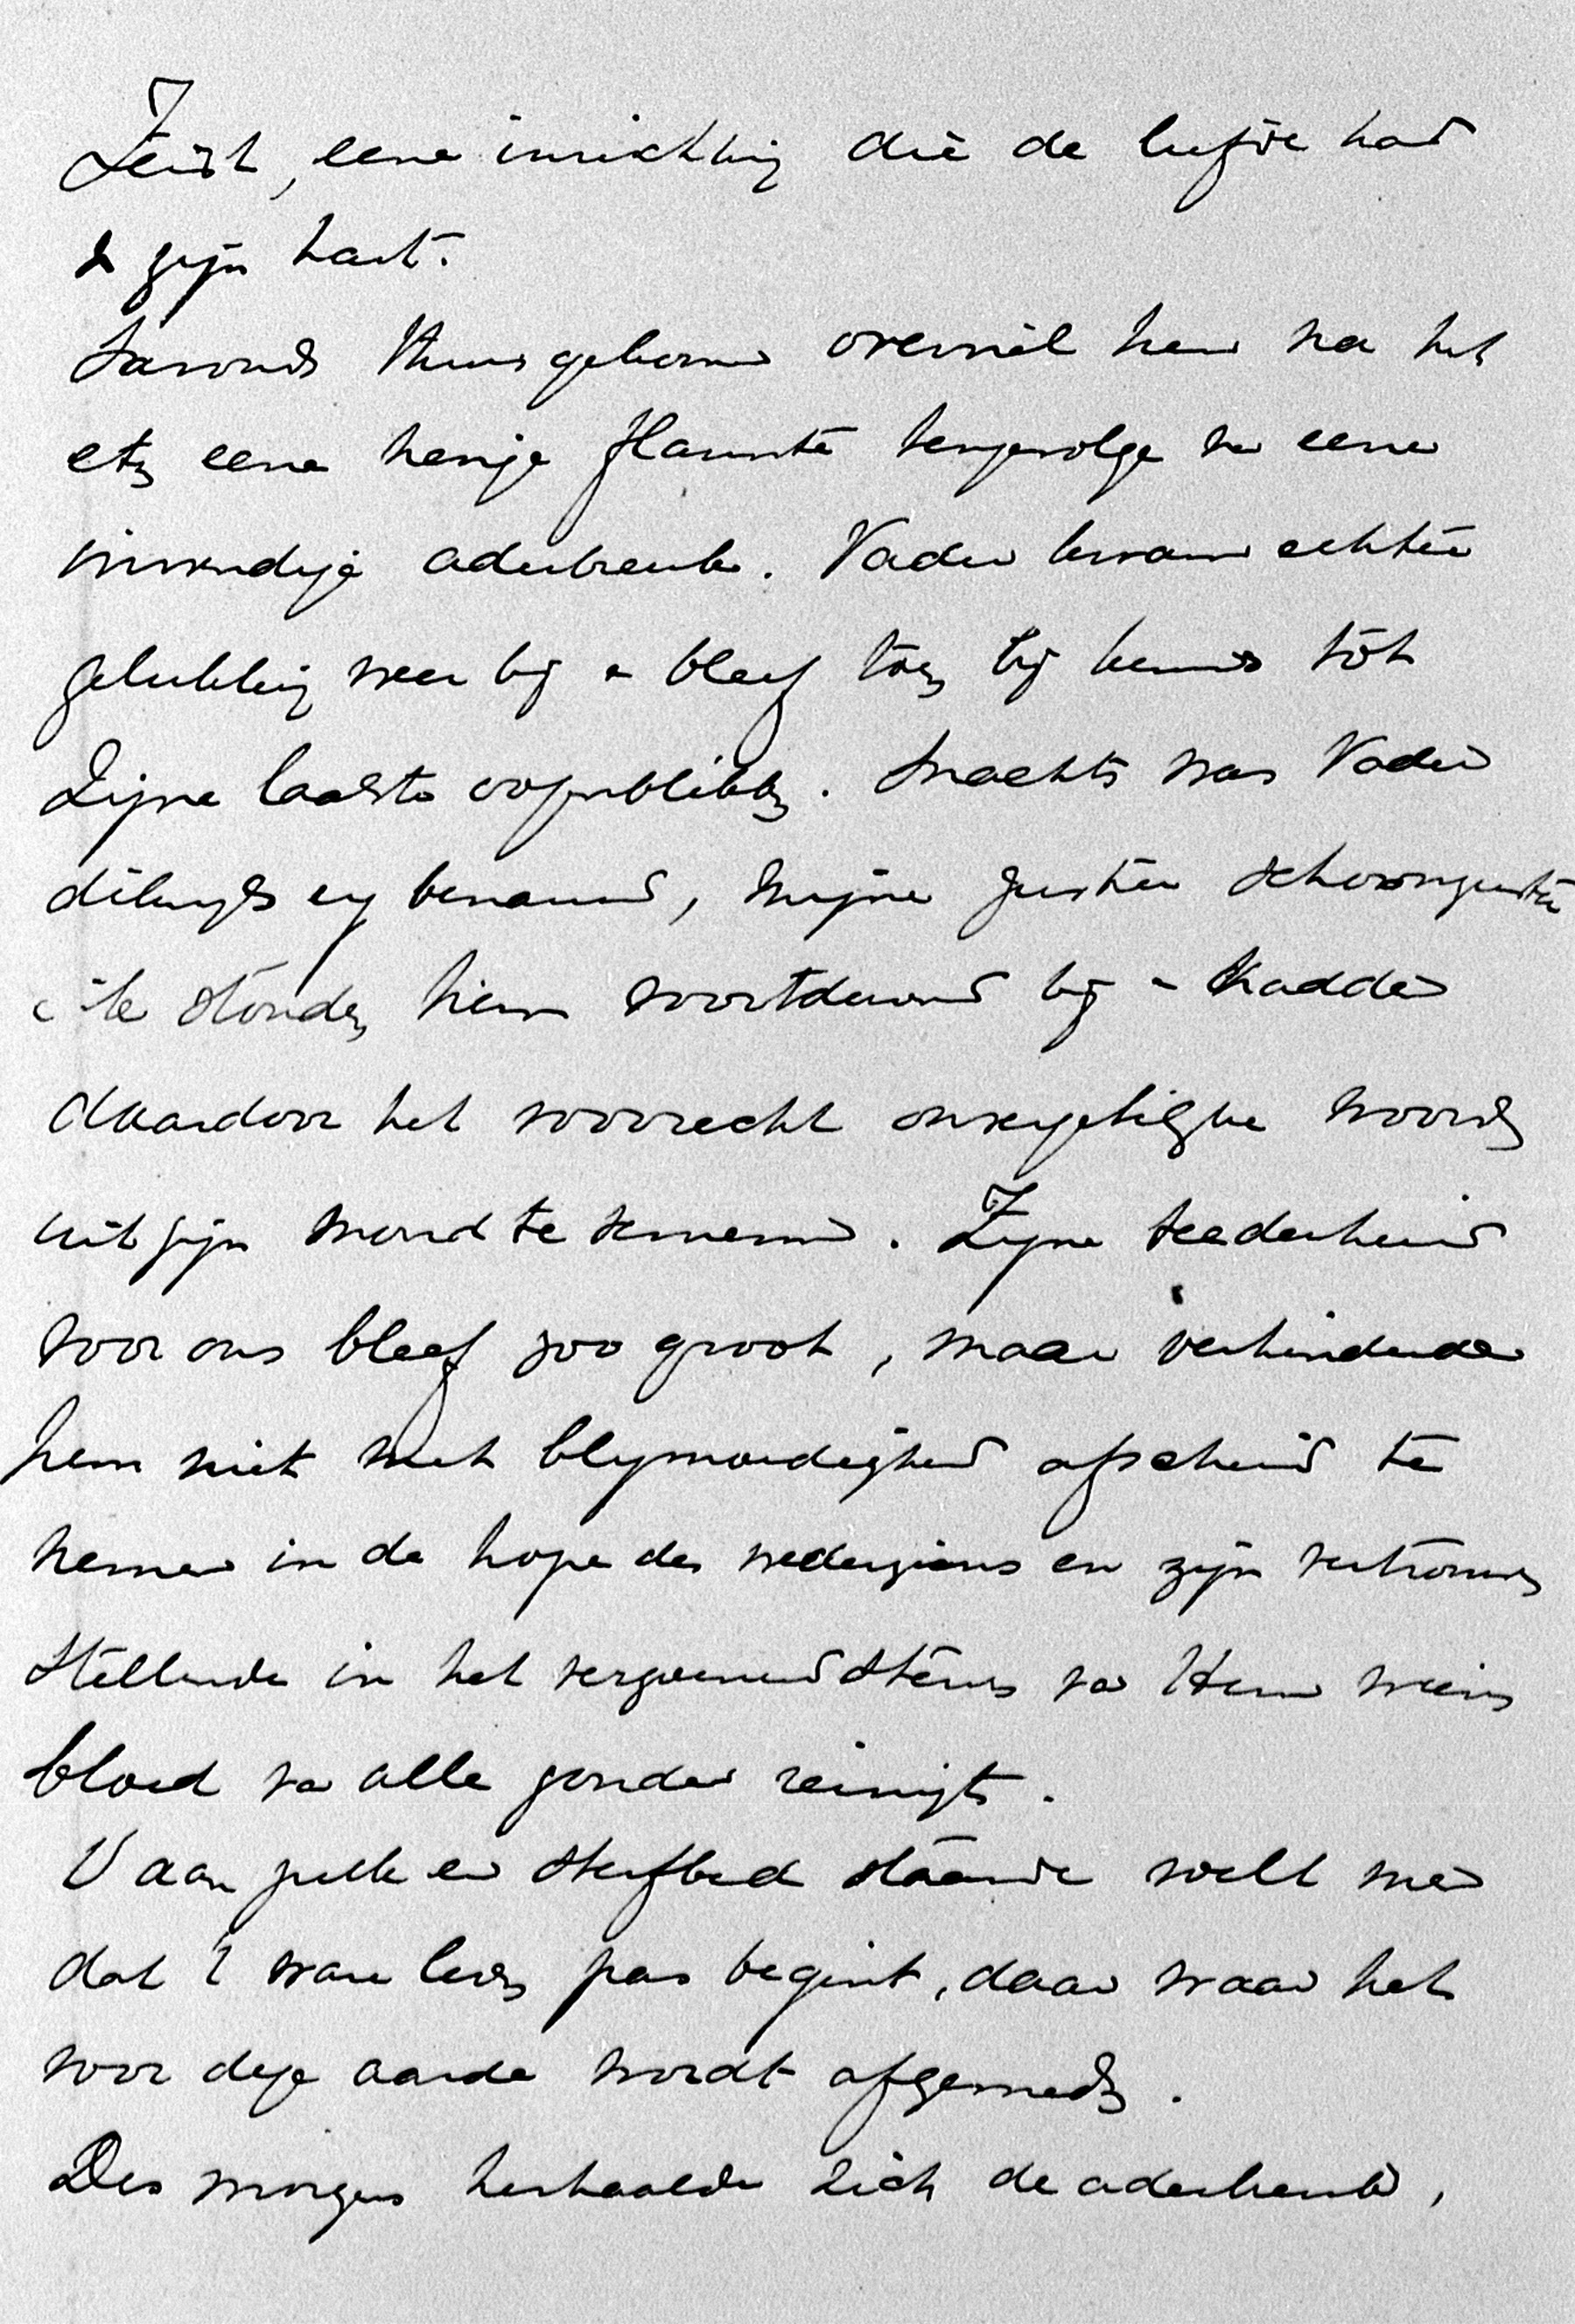 Zeist, eene inrichting die de liefde had
v zijn hart.
Savonds thuis gekomen overviel hem na het
eten eene hevige flauwte tengevolge v eene
inwendige aderbreuk. Vader kwam echter
gelukkig weer bij en bleef toen bij kennis tot
Zijne laatste oogenblikken. Snachts was Vader
dikwijls erg benauwd, mijne zuster schoonzuster
en ik stonden hem voortdurend bij en hadden
daardoor het voorrecht onvergetelijke woorden
uit zijn mond te vernemen. Zijne teederheid
voor ons bleef zoo groot, maar verhinderde
hem niet met blijmoedigheid afscheid te
nemen in de hope des wederziens en zijn vertrouwen
stellende in het zoenend sterven van Hem wiens
bloed van alle zonden reinigt.
V aan zulk een sterfbed staande voelt men
dat 't ware leven pas begint, daar waar het
voor deze aarde wordt afgesneden.
Des morgens herhaalde zich de aderbreuk,